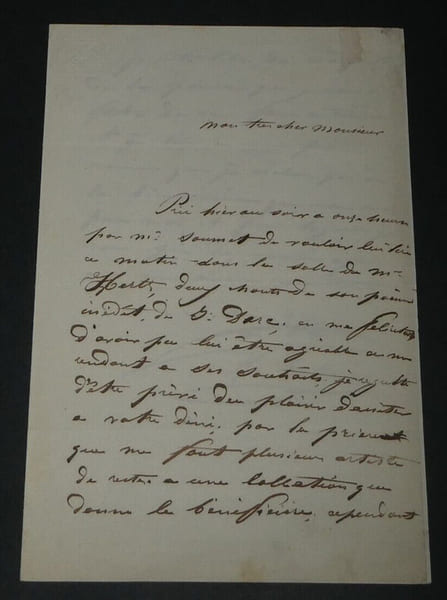 mon tres cher monsieur
Prié hier au soir a onze heures
par mr. soumet de vouloir lui lire
ce matin dans la salle de mr
Hertz, deux chants de son poëme
inédit, de J. Darc, en me félicitant
d'avoir pu lui être agréable en me
rendant a ses souhaits, je regrette
d'être privé du plaisir d'assister
a votre diné, par la priere
que me font plusieurs artistes
de rester a une collation que
donne le bénéficiaire, cependant